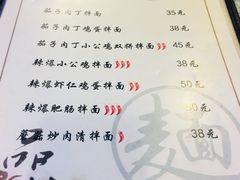 茄子肉丁拌面 35元
茄子肉丁鸡蛋拌面 38元
茄子肉丁小公鸡双拼拌面 45元
辣爆小公鸡拌面 38元
辣爆虾仁鸡蛋拌面 50元
辣爆肥肠拌面 50元
蘑菇炒肉清拌面 38元
麵
品